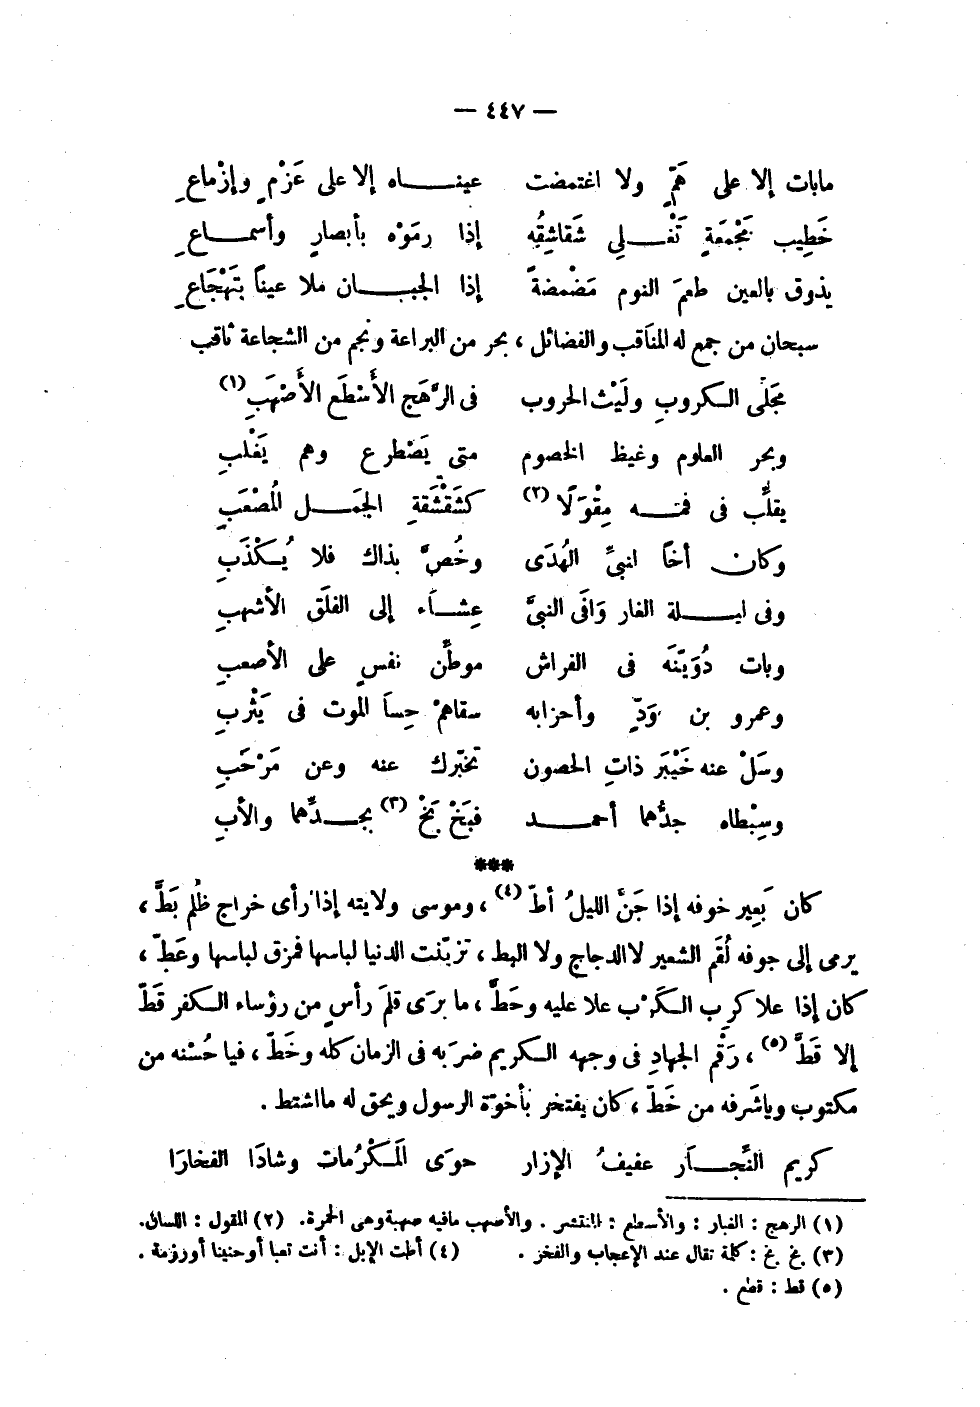 — ٤٤٧ —
مابات إلا على هَمٍّ ولا اغتمضت عيناه إلا على عَزْمٍ وإزْماعِ
خَطِيب مَجْمَعَةٍ تَغْلِي شَقاشِقُه إذا رمَوْه بأبصارٍ وأسماعِ
يذوق بالعين طعمَ النوم مَضْمضةً إذا الجبان ملا عينًا بتَهْجَاعِ
سبحان من جمع له المناقب والفضائل ، بحر من البراعة ونجم من الشجاعة ثاقب
مجَلِّى الكروبِ ولَيْث الحروب فى الرَّهَج الأَسْطَع الأَصْهَبِ (١)
وبحر العلوم وغيظ الخصوم متى يَصْطرع وهم يَغْلبِ
يقلِّب فى فمه مِقْوَلًا (٢) كشَقْشَقةِ الجمَل المُصْعَبِ
وكان أخًا لنبىِّ الهُدَى وخُصَّ بذاك فلا يُكْذَبِ
وفى ليلة الغار وَافَى النبىَّ عِشاَء إلى الفلَق الأشهبِ
وبات دُوَيْنَه فى الفراش موطِّن نفسٍ على الأصعبِ
وعمرو بن وَدٍّ وأحزابه سقاهمْ حِساَ الموت فى يَثْربِ
وسَلْ عنه خَيْبَر ذاتِ الحصون تخبِّرك عنه وعن مَرْحَبِ
وسِبْطاه جدُّهما أحمد فبَخْ بَخْ (٣) بجدِّهما والأبِ
***
كان بَعِير خوفه إذا جَنَّ الليلُ أطّ (٤) ، وموسى ولايته إذا رأى خراج ظُلم بَطَّ ،
يرمى إلى جوفه لُقَم الشعير لا الدجاج ولا البط ، تزيّنت الدنيا لباسها فمزق لباسها وعَطّ ،
كان إذا علا كرِب الكَرْب علا عليه وحَطَّ ، ما برَى قلمَ رأسٍ من رؤساء الكفر قَطّ
إلا قَطَّ (٥) ، رَقْم الجهادِ فى وجهه الكريم ضربَه فى الزمان كله وخَطّ ، فيا حُسْنه من
مكتوب وياشَرفه من خَطّ ، كان يفتخر بأخوّة الرسول ويحق له مااشتط .
كريم النِّجاَر عفيفُ الإزار حوَى المَكْرُمات وشادَا الفخارَا
(١) الرهج : الغبار : والأسطع : المنتشر . والأصهب مافيه صهبة وهى الحمرة. (٢) المقول : اللسان.
(٣) بخ بخ : كلمة تقال عند الإعجاب والفخر . (٤) أطت الإبل : أنت تعبا أو حنينا أورزمة .
(٥) قط : قطع .